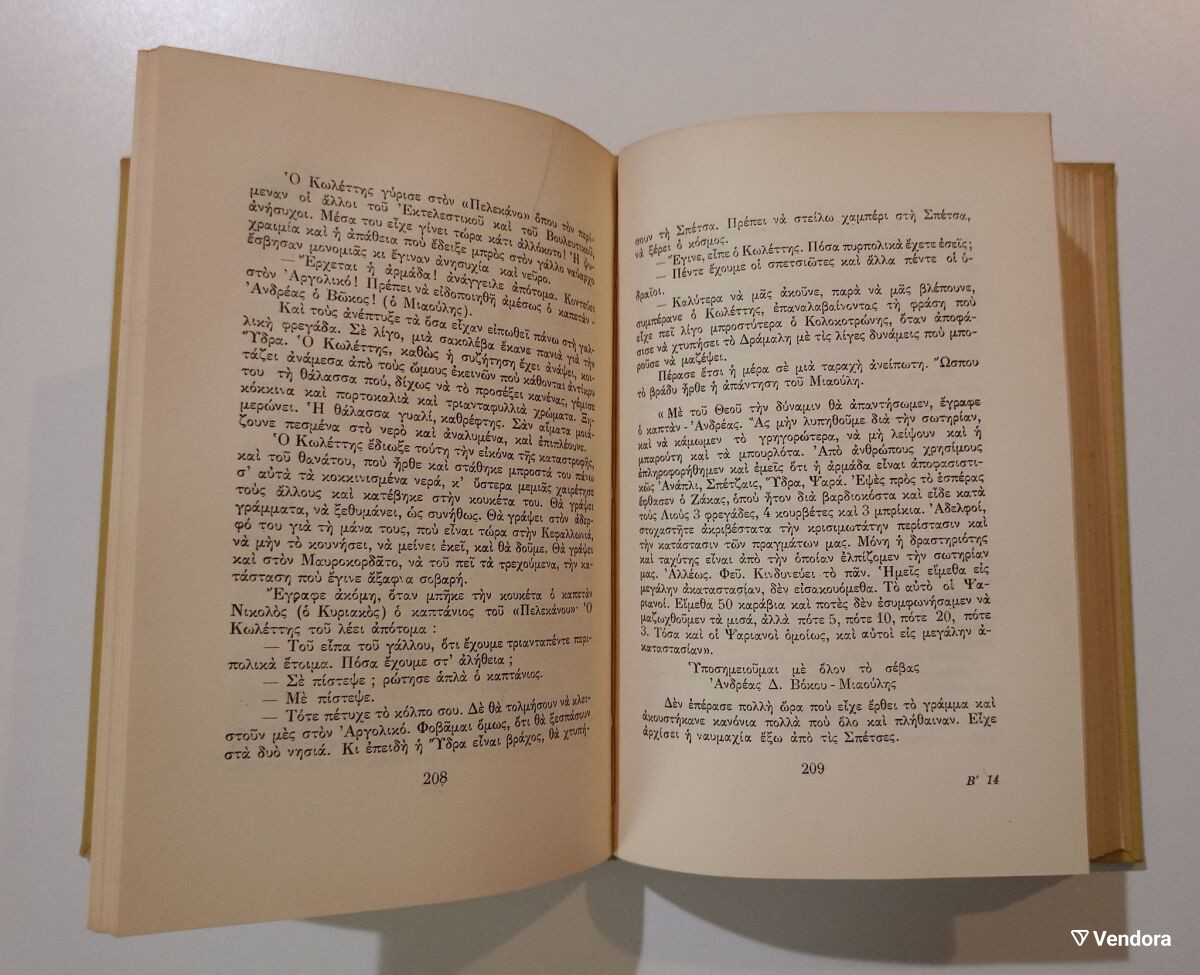 Ὁ Κωλέττης γύρισε στὸν «Πελεκάνο» ὅπου τὸν περί-
μεναν οἱ ἄλλοι τοῦ Ἐκτελεστικοῦ καὶ τοῦ Βουλευτικοῦ,
ἀνήσυχοι. Μέσα του εἶχε γίνει τώρα κάτι ἀλλόκοτο! Ἡ ψυ-
χραιμία καὶ ἡ ἀπάθεια ποὺ ἔδειξε μπρὸς στὸν γάλλο ναύαρχο
ἔσβησαν μονομιᾶς κι ἔγιναν ἀνησυχία καὶ νεῦρο.
— Ἔρχεται ἡ ἁρμάδα! ἀνάγγειλε ἀπότομα. Κοντεύει
στὸν Ἀργολικό! Πρέπει νὰ εἰδοποιηθῆ ἀμέσως ὁ καπετὰν -
Ἀνδρέας ὁ Βῶκος! (ὁ Μιαούλης).
Καὶ τοὺς ἀνέπτυξε τὰ ὅσα εἶχαν εἰπωθεῖ πάνω στὴ γαλ-
λικὴ φρεγάδα. Σὲ λίγο, μιὰ σακολέβα ἔκανε πανιὰ γιὰ τὴν
Ὕδρα. Ὁ Κωλέττης, καθὼς ἡ συζήτηση ἔχει ἀνάψει, κοι-
τάζει ἀνάμεσα ἀπὸ τοὺς ὤμους ἐκεινῶν ποὺ κάθονται ἀντίκρυ
του τὴ θάλασσα πού, δίχως νὰ τὸ προσέξει κανένας, γέμισε
κόκκινα καὶ πορτοκαλιὰ καὶ τριανταφυλλιὰ χρώματα. Ξη-
μερώνει. Ἡ θάλασσα γυαλί, καθρέφτης. Σὰν αἵματα μοιά-
ζουνε πεσμένα στὸ νερὸ καὶ ἀναλυμένα, καὶ ἐπιπλέουνε.
Ὁ Κωλέττης ἔδιωξε τούτη τὴν εἰκόνα τῆς καταστροφῆς,
καὶ τοῦ θανάτου, ποὺ ἦρθε καὶ στάθηκε μπροστά του πάνω
σ' αὐτὰ τὰ κοκκινισμένα νερά, κ' ὕστερα μεμιᾶς χαιρέτησε
τοὺς ἄλλους καὶ κατέβηκε στὴν κουκέτα του. Θὰ γράψει
γράμματα, νὰ ξεθυμάνει, ὡς συνήθως. Θὰ γράψει στὸν ἀδερ-
φό του γιὰ τὴ μάνα τους, ποὺ εἶναι τώρα στὴν Κεφαλλωνιά,
νὰ μὴν τὸ κουνήσει, νὰ μείνει ἐκεῖ, καὶ θὰ δοῦμε. Θὰ γράψει
καὶ στὸν Μαυροκορδᾶτο, νὰ τοῦ πεῖ τὰ τρεχούμενα, τὴν κα-
τάσταση ποὺ ἔγινε ἄξαφνα σοβαρή.
Ἔγραφε ἀκόμη, ὅταν μπῆκε τὴν κουκέτα ὁ καπετὰν
Νικολὸς (ὁ Κυριακὸς) ὁ καπτάνιος τοῦ «Πελεκάνου» Ὁ
Κωλέττης τοῦ λέει ἀπότομα :
— Τοῦ εἶπα τοῦ γάλλου, ὅτι ἔχουμε τριανταπέντε περι-
πολικὰ ἕτοιμα. Πόσα ἔχουμε στ' ἀλήθεια ;
— Σὲ πίστεψε ; ρώτησε ἁπλὰ ὁ καπτάνιος.
— Μὲ πίστεψε.
— Τότε πέτυχε τὸ κόλπο σου. Δὲ θὰ τολμήσουν νὰ κλει-
στοῦν μὲς στὸν Ἀργολικό. Φοβᾶμαι ὅμως, ὅτι θὰ ξεσπάσουν
στὰ δυὸ νησιά. Κι ἐπειδὴ ἡ Ὕδρα εἶναι βράχος, θὰ χτυπή-
208
σουν τὴ Σπέτσα. Πρέπει νὰ στείλω χαμπέρι στὴ Σπέτσα,
νὰ ξέρει ὁ κόσμος.
— Ἔγινε, εἶπε ὁ Κωλέττης. Πόσα πυρπολικὰ ἔχετε ἐσεῖς;
— Πέντε ἔχουμε οἱ σπετσιῶτες καὶ ἄλλα πέντε οἱ ὑ-
δραῖοι.
— Καλύτερα νὰ μᾶς ἀκοῦνε, παρὰ νὰ μᾶς βλέπουνε,
συμπέρανε ὁ Κωλέττης, ἐπαναλαβαίνοντας τὴ φράση ποὺ
εἶχε πεῖ λίγο μπροστύτερα ὁ Κολοκοτρώνης, ὅταν ἀποφά-
σισε νὰ χτυπήσει τὸ Δράμαλη μὲ τὶς λίγες δυνάμεις ποὺ μπο-
ροῦσε νὰ μαζέψει.
Πέρασε ἔτσι ἡ μέρα σὲ μιὰ ταραχὴ ἀνείπωτη. Ὥσπου
τὸ βράδυ ἦρθε ἡ ἀπάντηση τοῦ Μιαούλη.
« Μὲ τοῦ Θεοῦ τὴν δύναμιν θὰ ἀπαντήσωμεν, ἔγραφε
ὁ καπτὰν - Ἀνδρέας. Ἂς μὴν λυπηθοῦμε διὰ τὴν σωτηρίαν,
καὶ νὰ κάμωμεν τὸ γρηγορώτερα, νὰ μὴ λείψουν καὶ ἡ
μπαρούτη καὶ τὰ μπουρλότα. Ἀπὸ ἀνθρώπους χρησίμους
ἐπληροφορήθημεν καὶ ἐμεῖς ὅτι ἡ ἁρμάδα εἶναι ἀποφασιστι-
κῶς Ἀνάπλι, Σπέτζαις, Ὕδρα, Ψαρά. Ἐψὲς πρὸς τὸ ἑσπέρας
ἔφθασεν ὁ Ζάκας, ὁποὺ ἦτον διὰ βαρδιοκόστα καὶ εἶδε κατὰ
τοὺς Λιοὺς 3 φρεγάδες, 4 κουρβέτες καὶ 3 μπρίκια. Ἀδελφοί,
στοχαστῆτε ἀκριβέστατα τὴν κρισιμωτάτην περίστασιν καὶ
τὴν κατάστασιν τῶν πραγμάτων μας. Μόνη ἡ δραστηριότης
καὶ ταχύτης εἶναι ἀπὸ τὴν ὁποίαν ἐλπίζομεν τὴν σωτηρίαν
μας. Ἀλλέως. Φεῦ. Κινδυνεύει τὸ πᾶν. Ἡμεῖς εἴμεθα εἰς
μεγάλην ἀκαταστασίαν, δὲν εἰσακουόμεθα. Τὸ αὐτὸ οἱ Ψα-
ριανοί. Εἴμεθα 50 καράβια καὶ ποτὲς δὲν ἐσυμφωνήσαμεν νὰ
μαζωχθοῦμεν τὰ μισά, ἀλλὰ πότε 5, πότε 10, πότε 20, πότε
3. Τόσα καὶ οἱ Ψαριανοὶ ὁμοίως, καὶ αὐτοὶ εἰς μεγάλην ἀ-
καταστασίαν».
Ὑποσημειοῦμαι μὲ ὅλον τὸ σέβας
Ἀνδρέας Δ. Βόκου - Μιαούλης
Δὲν ἐπέρασε πολλὴ ὥρα ποὺ εἶχε ἔρθει τὸ γράμμα καὶ
ἀκουστήκανε κανόνια πολλὰ ποὺ ὅλο καὶ πλήθαιναν. Εἶχε
ἀρχίσει ἡ ναυμαχία ἔξω ἀπὸ τὶς Σπέτσες.
209
Β' 14
Vendora